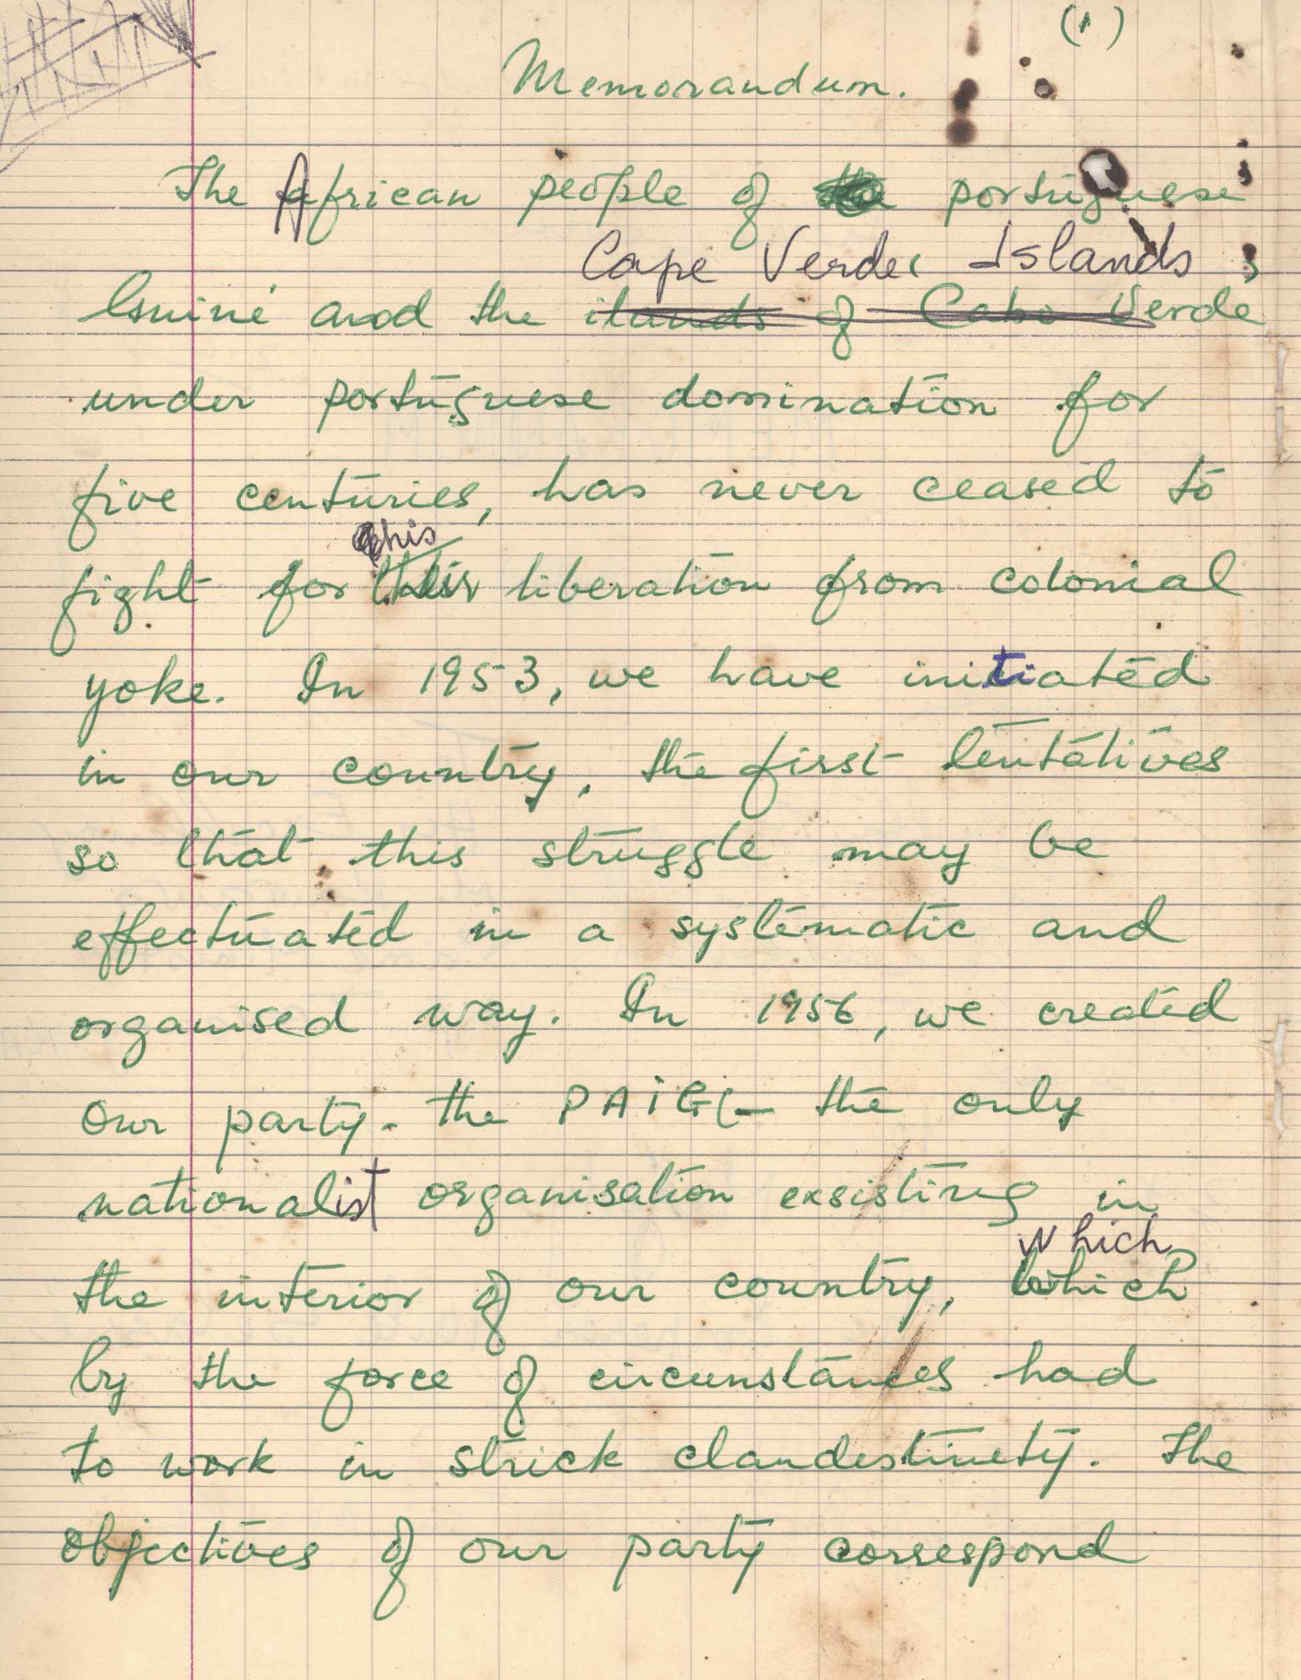 (1)
Memorandum.
The African people of the portuguese
Cape Verde Islands,
Guiné and the ilands of Cabo Verde
under portuguese domination for
five centuries, has never ceased to
this
fight for their liberation from colonial
yoke. In 1953, we have initiated
in our country, the first tentatives
so that this struggle may be
effectuated in a systematic and
organised way. In 1956, we created
our party - the PAIGC - the only
nationalist organisation exsisting in
which
the interior of our country, which
by the force of circunstances had
to work in strick clandestinety. The
objectives of our party correspond